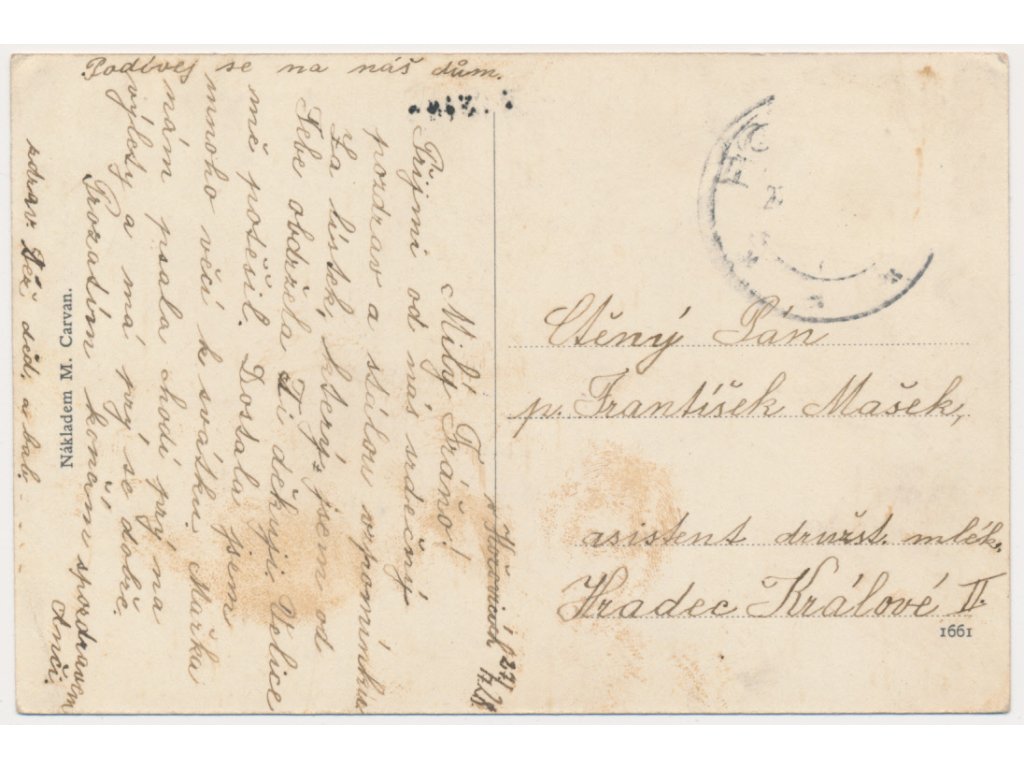 Podívej se na náš dům.
v Hořovicích 22/
Milý Fráňo!
Přijmi od nás srdečný
pozdrav a stálou vzpomínku.
Za lístek, který jsem od
Tebe obdržela Ti děkuji. Velice
mě potěšil. Dostala jsem
mnoho věcí k svátku. Mařka
nám psala chodí prý na
výlety a má prý se dobře.
Prozatím končím s pozdravem
Anči.
zdrav Též děd. a bab.
Nákladem M. Carvan.
Ctěný Pán
p. František Mašek,
asistent družst. mlék.
Hradec Králové II.
1661